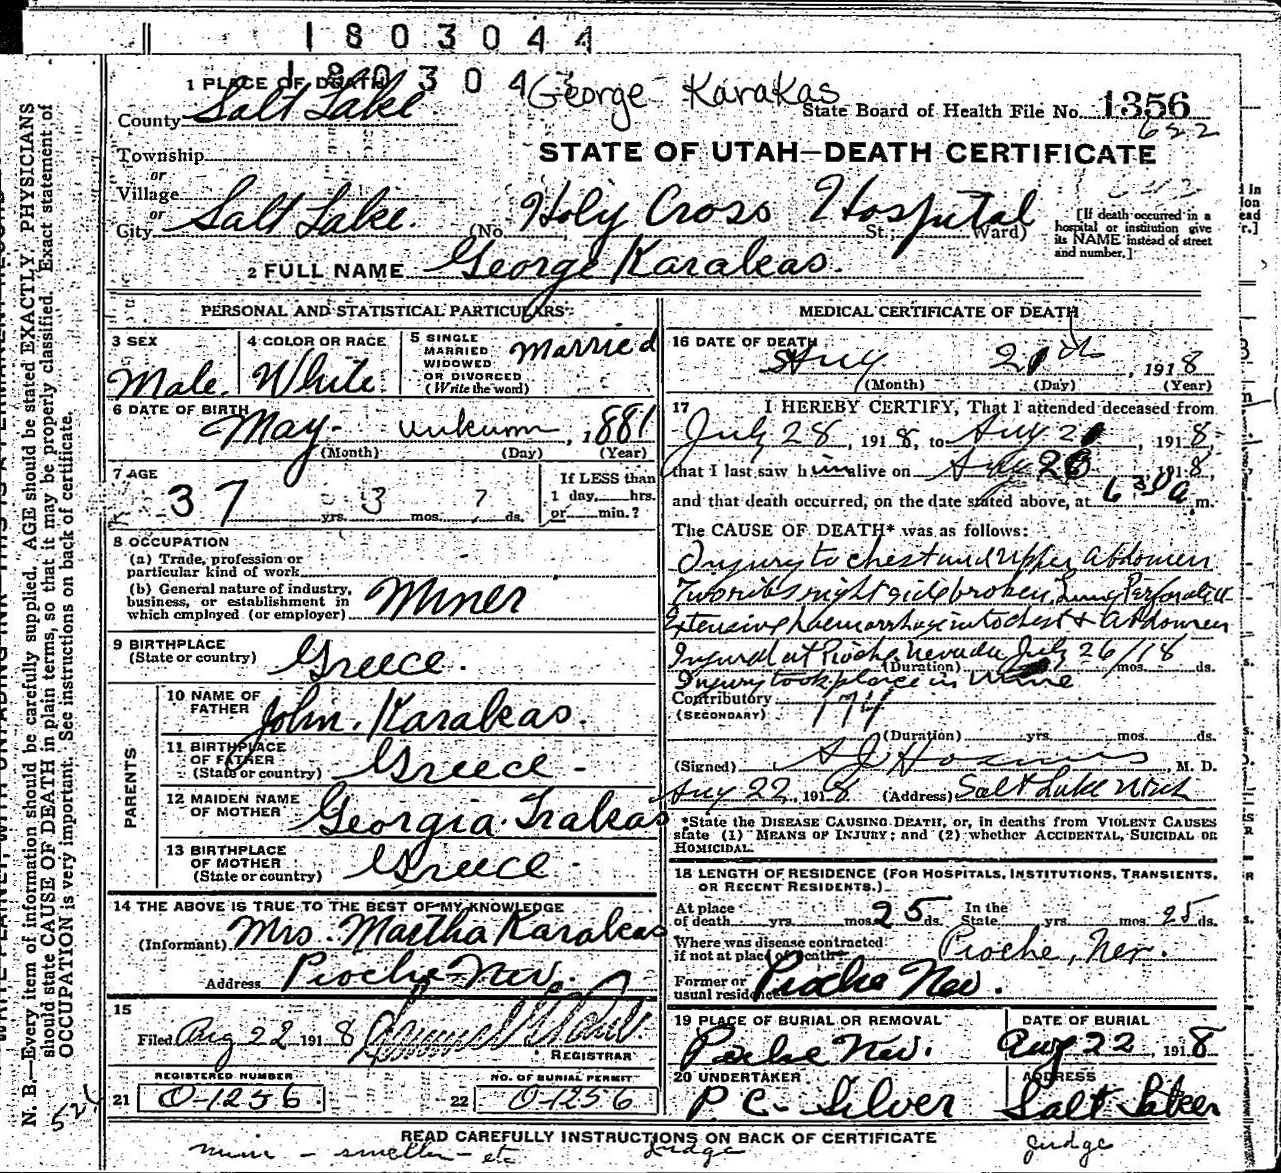 1803044
1 PLACE OF DEATH
180304
George Karakas
County Salt Lake
State Board of Health File No. 1356
622
Township
or
STATE OF UTAH—DEATH CERTIFICATE
Village
or
City Salt Lake. (No. Holy Cross Hospital St.; Ward)
[If death occurred in a hospital or institution give its NAME instead of street and number.]
2 FULL NAME George Karakas.
PERSONAL AND STATISTICAL PARTICULARS
3 SEX
Male.
4 COLOR OR RACE
White
5 SINGLE MARRIED WIDOWED OR DIVORCED (Write the word)
Married
6 DATE OF BIRTH
May unknown, 1881
(Month) (Day) (Year)
7 AGE
37 yrs. 3 mos. 7 ds.
If LESS than 1 day, hrs. or min.?
8 OCCUPATION
(a) Trade, profession or particular kind of work
(b) General nature of industry, business, or establishment in which employed (or employer)
Miner
9 BIRTHPLACE (State or country)
Greece.
PARENTS
10 NAME OF FATHER
John. Karakas.
11 BIRTHPLACE OF FATHER (State or country)
Greece-
12 MAIDEN NAME OF MOTHER
Georgia. Trakas
13 BIRTHPLACE OF MOTHER (State or country)
Greece-
14 THE ABOVE IS TRUE TO THE BEST OF MY KNOWLEDGE
(Informant) Mrs. Martha Karakas
Address Pioche-Nev.
15
Filed Aug 22 1918
REGISTRAR
REGISTERED NUMBER
21 0-1256
NO. OF BURIAL PERMIT
22 0-1256
MEDICAL CERTIFICATE OF DEATH
16 DATE OF DEATH
Aug 21th, 1918
(Month) (Day) (Year)
17 I HEREBY CERTIFY, That I attended deceased from
July 28, 1918, to Aug 21, 1918,
that I last saw him alive on Aug 20, 1918,
and that death occurred, on the date stated above, at 6 30 a m.
The CAUSE OF DEATH* was as follows:
Injury to chest and upper abdomen
Two ribs right side broken, Lung Perforated
Extensive haemorrhage into chest & abdomen
Injured at Pioche Nevada July 26/18
(Duration) mos. ds.
Injury took place in Mine
Contributory
(SECONDARY)
174
(Duration) yrs. mos. ds.
(Signed) M. D.
Aug 22, 1918 (Address) Salt Lake Utah
*State the DISEASE CAUSING DEATH, or, in deaths from VIOLENT CAUSES state (1) MEANS OF INJURY; and (2) whether ACCIDENTAL, SUICIDAL OR HOMICIDAL.
18 LENGTH OF RESIDENCE (FOR HOSPITALS, INSTITUTIONS, TRANSIENTS, OR RECENT RESIDENTS.)
At place of death yrs. mos. 25 ds. In the State yrs. mos. 25 ds.
Where was disease contracted if not at place of death? Pioche, Nev.
Former or usual residence Pioche Nev.
19 PLACE OF BURIAL OR REMOVAL
Pioche Nev.
DATE OF BURIAL
Aug 22, 1918
20 UNDERTAKER
P C- Silver
ADDRESS
Salt Lake
READ CAREFULLY INSTRUCTIONS ON BACK OF CERTIFICATE
mine - smelter - etc
Judge
judge
N. B.—Every item of information should be carefully supplied. AGE should be stated EXACTLY. PHYSICIANS
should state CAUSE OF DEATH in plain terms, so that it may be properly classified. Exact statement of
OCCUPATION is very important. See instructions on back of certificate.
524